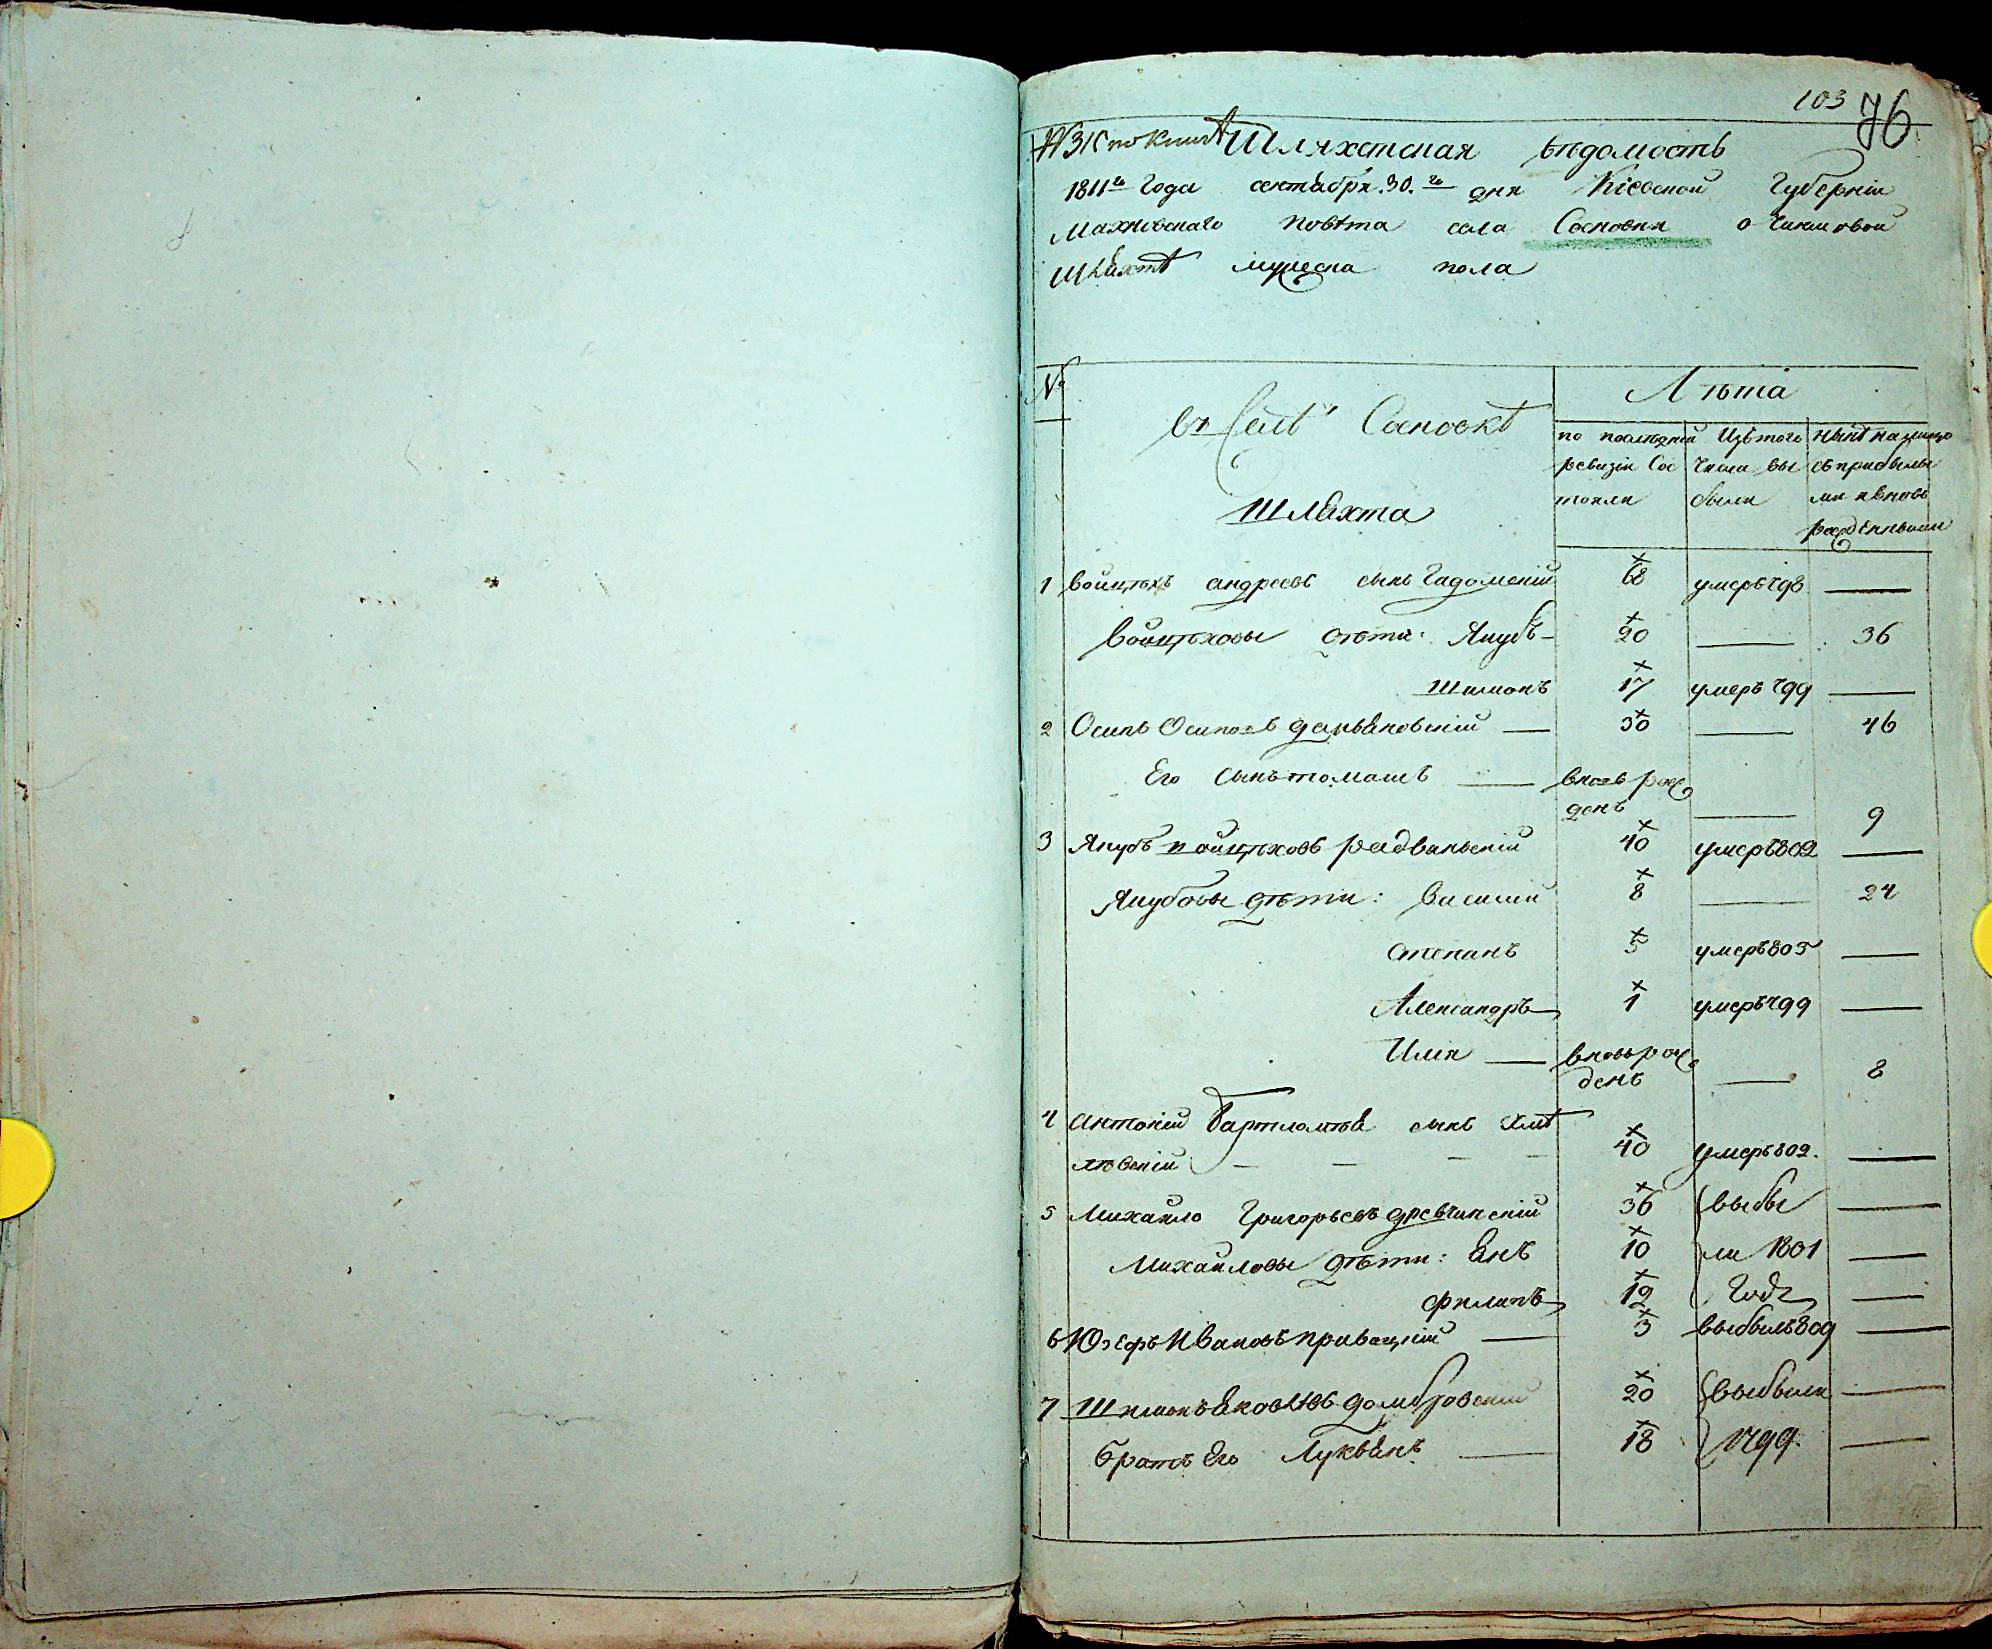 103 76
№ 31 по книгѣ Шляхетская вѣдомость
1811го Года сентября 30го дня Кіевской Губерніи
Махновскаго повѣта села Сосновки о чиншовой
шляхтѣ мужеска пола
№
въ Селѣ Сосновкѣ
Шляхта
Лѣта
по послѣдней
ревизіи Сос
тояли
Изъ того
числа вы
были
нынѣ на лицо
съ прибылы
ми и вновь
рожденными
1 войцѣхъ андреевъ сынъ Гадомскій 68 умеръ 798 —
Войцѣховы дѣти: Якубъ 20 — 36
Шимонъ 17 умеръ 799 —
2 Осипъ Осиповъ — 30 — 46
Его сынъ томашъ — вновь рож
денъ — 9
3 Якубъ войцѣховъ радванскій 40 умеръ 802 —
Якубовы дѣти: Василій 8 — 24
степанъ 5 умеръ 805 —
Александръ 1 умеръ 799 —
Илія — вновь рож
денъ — 8
4 антоній Бартломѣя сынъ хмѣ
лѣвскій — — — — 40 умеръ 802. —
5 Михайло Григорьевъ древчинскій 36 выбы —
Михайловы дѣти: янъ 10 ли 1801 —
филипъ 12 Года —
6 Юзефъ Ивановъ — 3 выбылъ 809 —
7 Шимонъ яковлѣвъ домбровскій 20 выбыли —
братъ его Лукьянъ — 18 1799. —